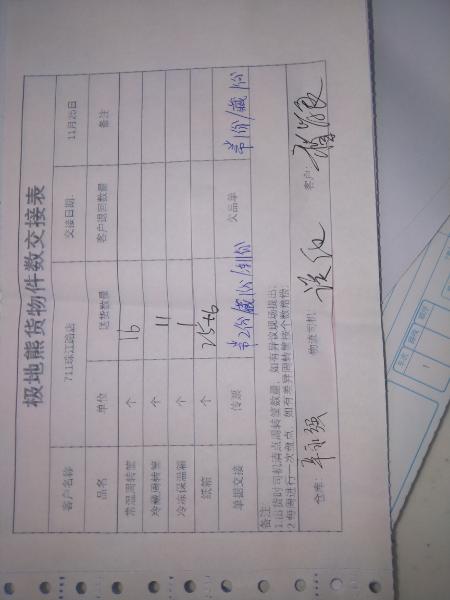 极地熊货物件数交接表
客户名称 711珠江路店 交接日期: 11月25日
品名 单位 送货数量 客户退回数量 备注
常温周转筐 个 16
冷藏周转筐 个 11
冷冻保温箱 个 1
纸箱 个 25+6
单据交接 传票 常2份/藏1份/刊1份 欠品单 常1份/藏1份
备注:
1.出货时司机清点周转筐数量, 如有异议现场提出;
2.每周进行一次盘点, 如有差异周转筐按个数赔偿
仓库: 物流司机: 客户: